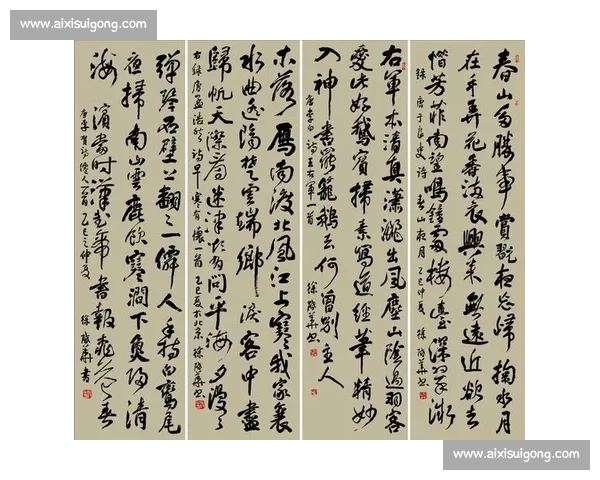 www.aixisuigong.com
www.aixisuigong.com
春山多勝事賞翫夜忘歸掬水月
在手弄花香滿衣興來無遠近欲去
惜芳菲南望鳴鐘處樓臺深翠微
錄唐于良史詩春山夜月 乙巳仲夏 徐 華書
右軍本清真瀟洒出風塵山陰過羽客
愛此好鵝賓掃素寫道經筆精妙
入神書罷籠鵝去何曾別主人
唐李白詩王右軍一首 徐 華書
木落雁南渡北風江上寒我家襄
水曲遙隔楚雲端鄉淚客中盡
歸帆天際看迷津欲有問平海夕漫々
右錄唐孟浩然詩早寒有懷一首 乙巳夏於北京 徐 華書
彈琴石壁上翻々一僊人手持白鸞尾
夜掃南山雲鹿飲寒澗下魚歸清
海濱當時漢武帝書報桃花春
唐李賀詩仙人一首 乙巳之仲夏 徐 華書
www.aixisuigong.com
www.aixisuigong.com